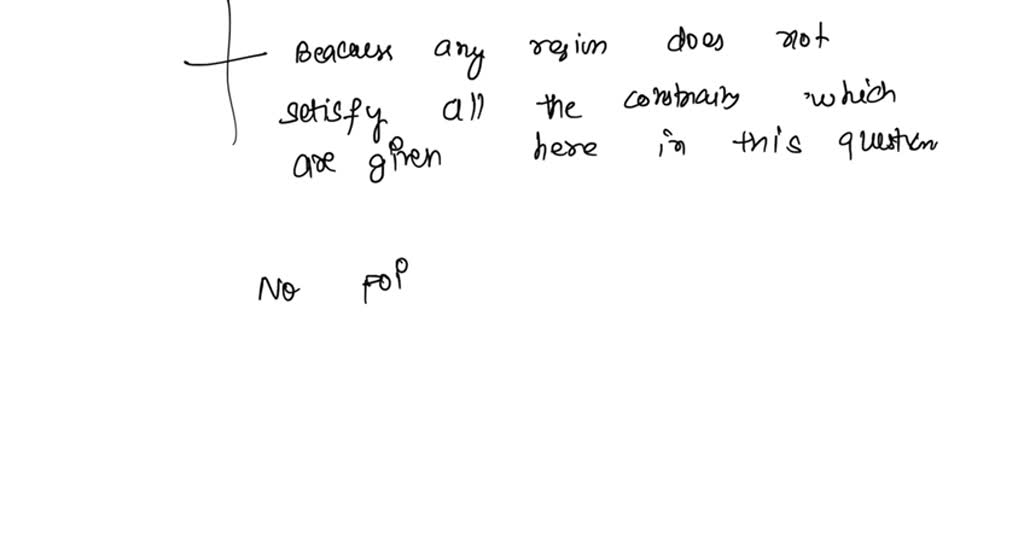 Beacauss any region does not
satisfy all the constrains which
are given here in this question
No FOP